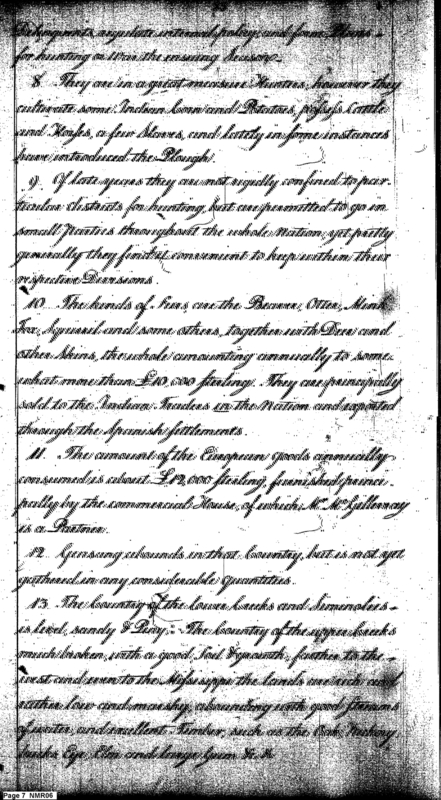 Delinquents, regulate internal policy, and form Plans
for hunting or War the ensuing Season.
8. They are in a great measure Hunters, however they
cultivate some Indian Corn and Potatoes, possess Cattle
and Horses, a few Slaves, and lately in some instances
have introduced the Plough.
9. Of late years they are not rigidly confined to par-
ticular districts for hunting, but are permitted to go in
small Parties throughout the whole Nation, yet pretty
generally they find it convenient to keep within their
respective Divisions.
10. The kinds of Furs, are the Beaver, Otter, Mink
Fox, Squirrel and some others, together with Deer and
other Skins, the whole amounting annually to some-
what more than £10,000 sterling. They are principally
sold to the Indian Traders in the Nation and exported
through the Spanish Settlements.
11. The amount of the European goods annually
consumed is about £12,000 Sterling, furnished princi-
pally by the commercial House, of which Mr. McGillivray
is a Partner.
12. Ginseng abounds in that Country, but is not yet
gathered in any considerable quantities.
13. The Country of the lower Creeks and Seminoles
is level, sandy & Piney. The Country of the upper Creeks
much broken, with a good Soil & growth, farther to the
west and even to the Mississippi the lands are rich and
rather low and marshy, abounding with good streams
of water, and excellent Timber, such as the Oak, Hickory,
Bucks Eye, Elm and large Gum &c. &c.
Page 7 NMR06